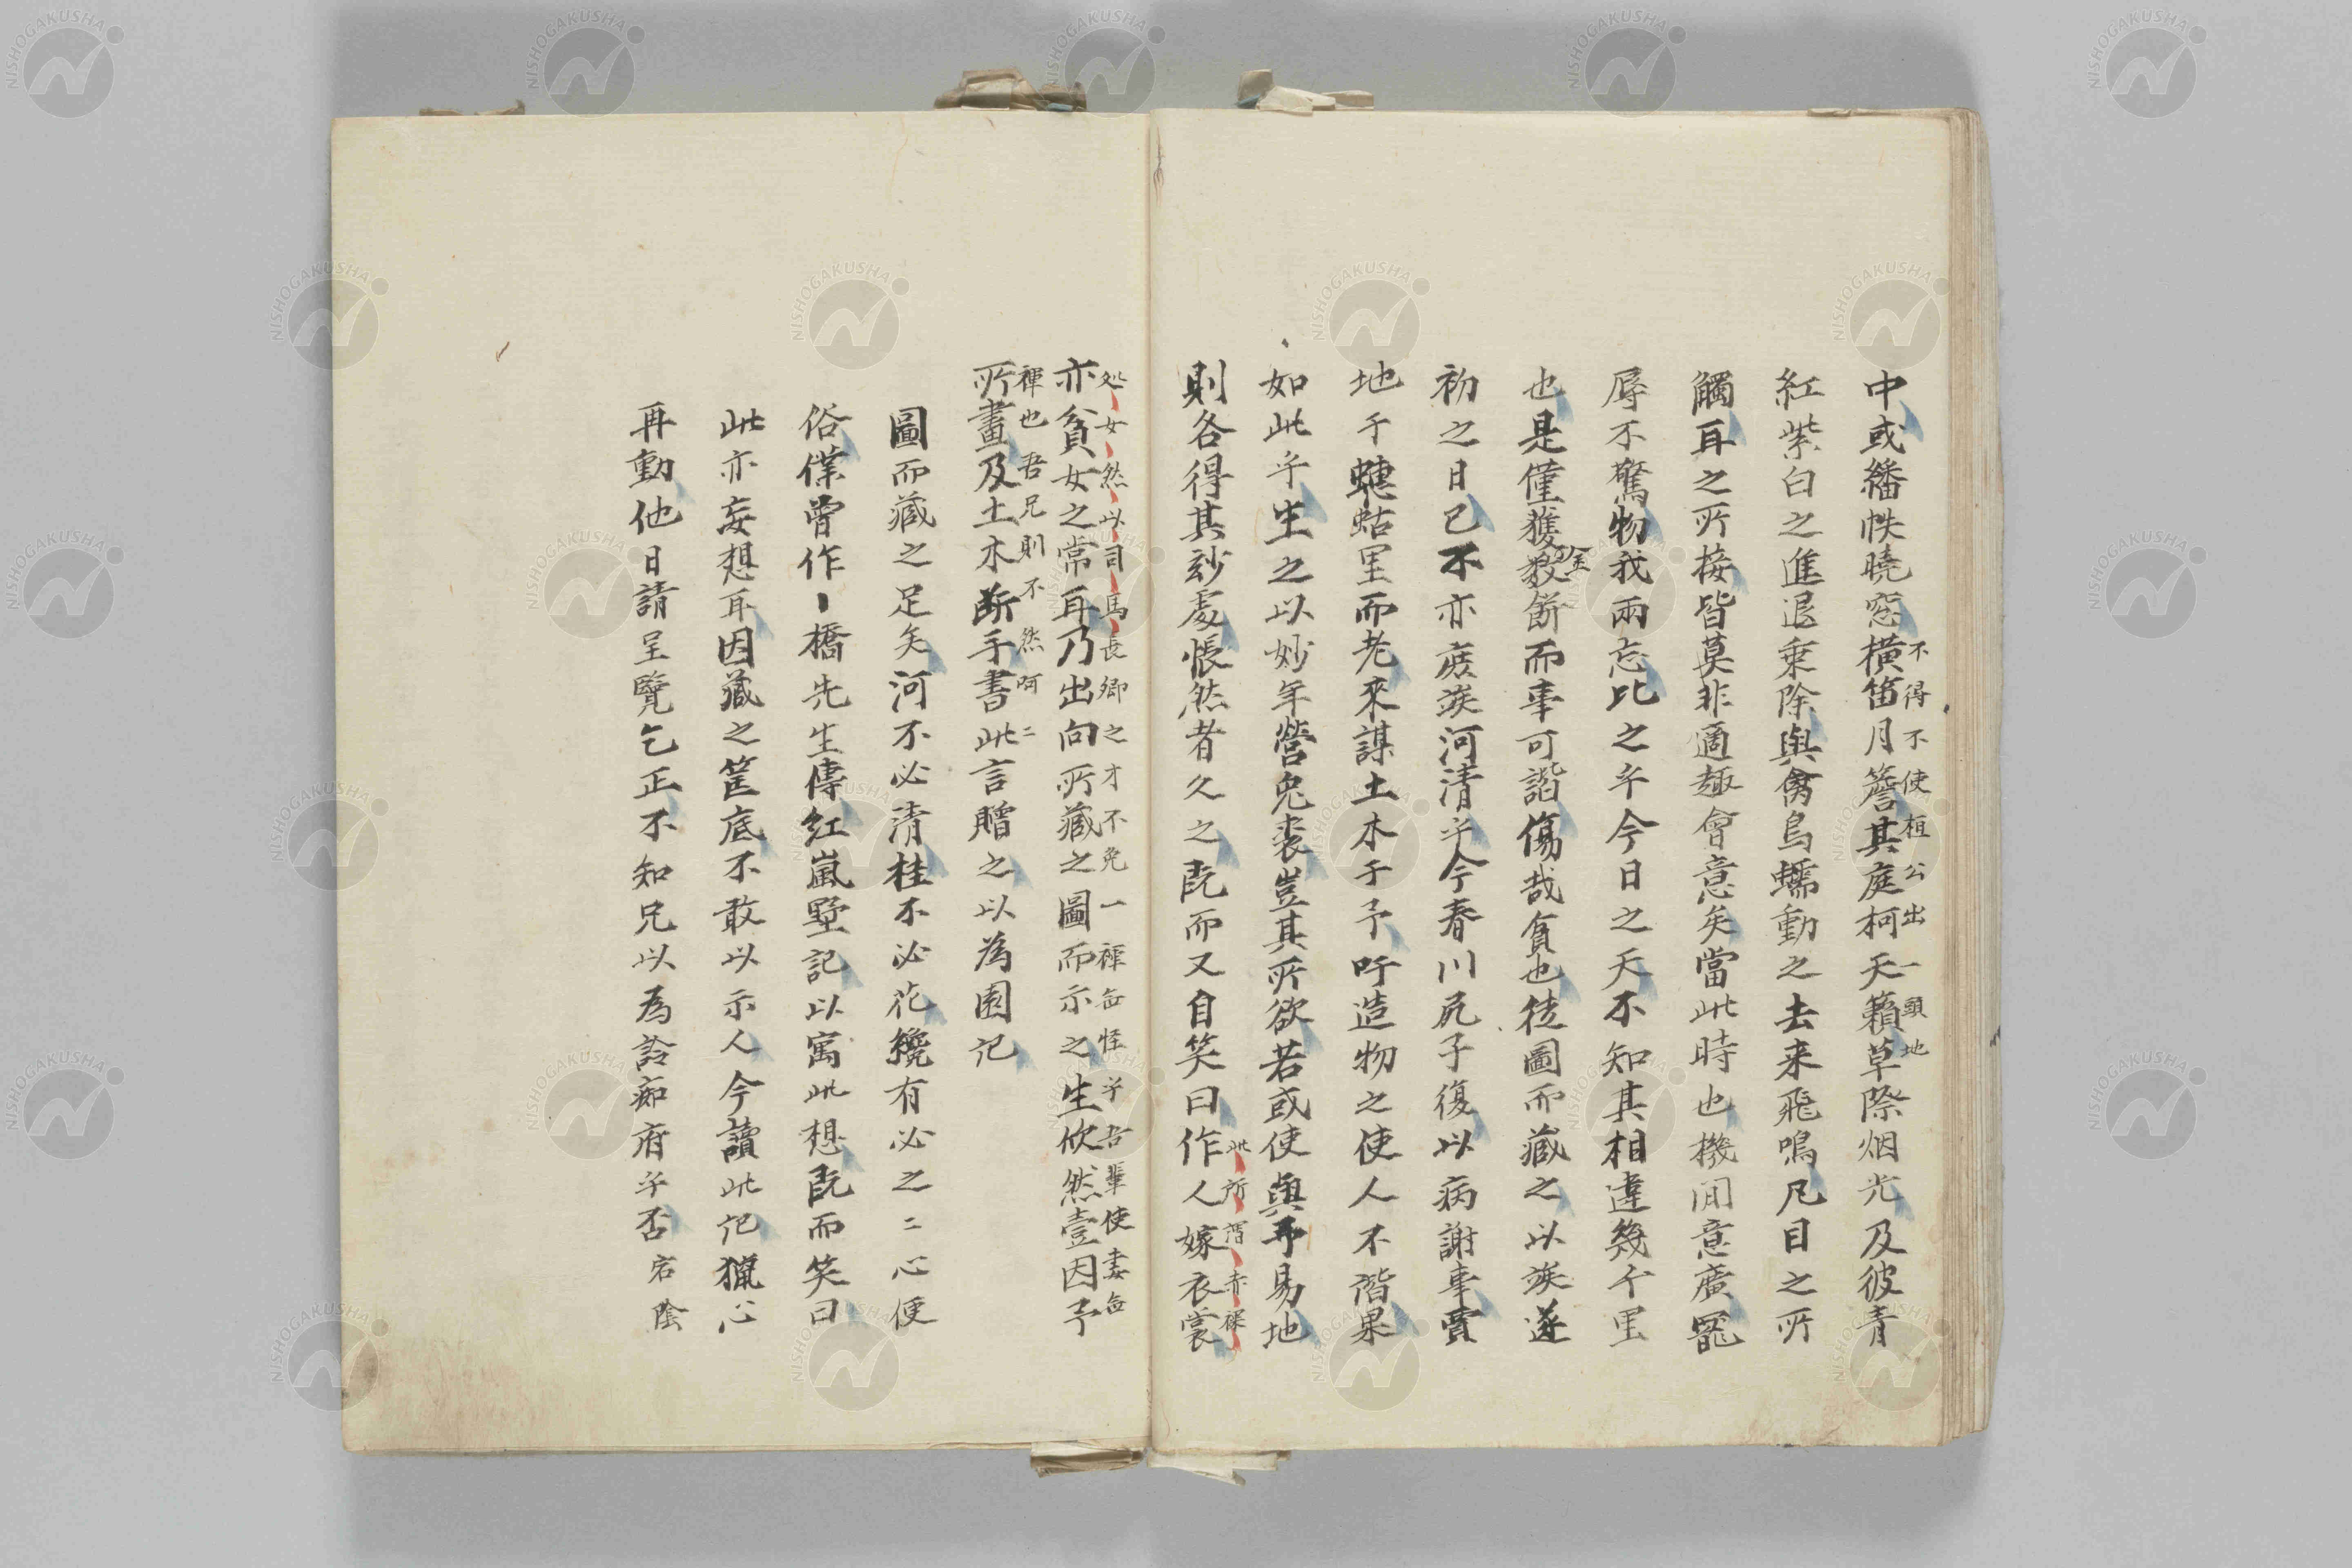 中或繙帙曉窓横笛月簷其庭柯天籟草際烟光及彼青
不得不使桓公出一頭地
紅紫白之進退乘除與禽鳥蠕動之去来飛鳴凡目之所
觸耳之所接皆莫非適趣會意矣當此時也機閒意廣寵
辱不驚物我兩忘比之乎今日之天不知其相違幾千里
也是僅獲數餅而事可諧傷哉貧也徒圖而藏之以竢遂
金
初之日已不亦疲竢河清乎今春川尻子復以病謝事買
地于蟪蛄里而老來謀土木于予吁造物之使人不偕果
如此乎生之以妙年營兔裘豈其所欲若或使與予易地
則各得其妙處悵然者久之既而又自笑曰作人嫁衣裳
此所謂赤裸
处女然以司馬長卿之才不免一褌無怪乎吾輩使妻無
亦貧女之常耳乃出向所藏之圖而示之生欣然壹因予
褌也吾兄則不然呵二
所畫及土木断手書此言贈之以為園記
圖而藏之足矣河不必清桂不必花纔有必之二心便
俗僕曾作橋先生傳紅嵐墅記以寓此想既而笑曰
此亦妄想耳因藏之筐底不敢以示人今讀此記獵心
再動他日請呈覽乞正不知兄以為詅痴府乎否 宕陰
NISHOGAKUSHA